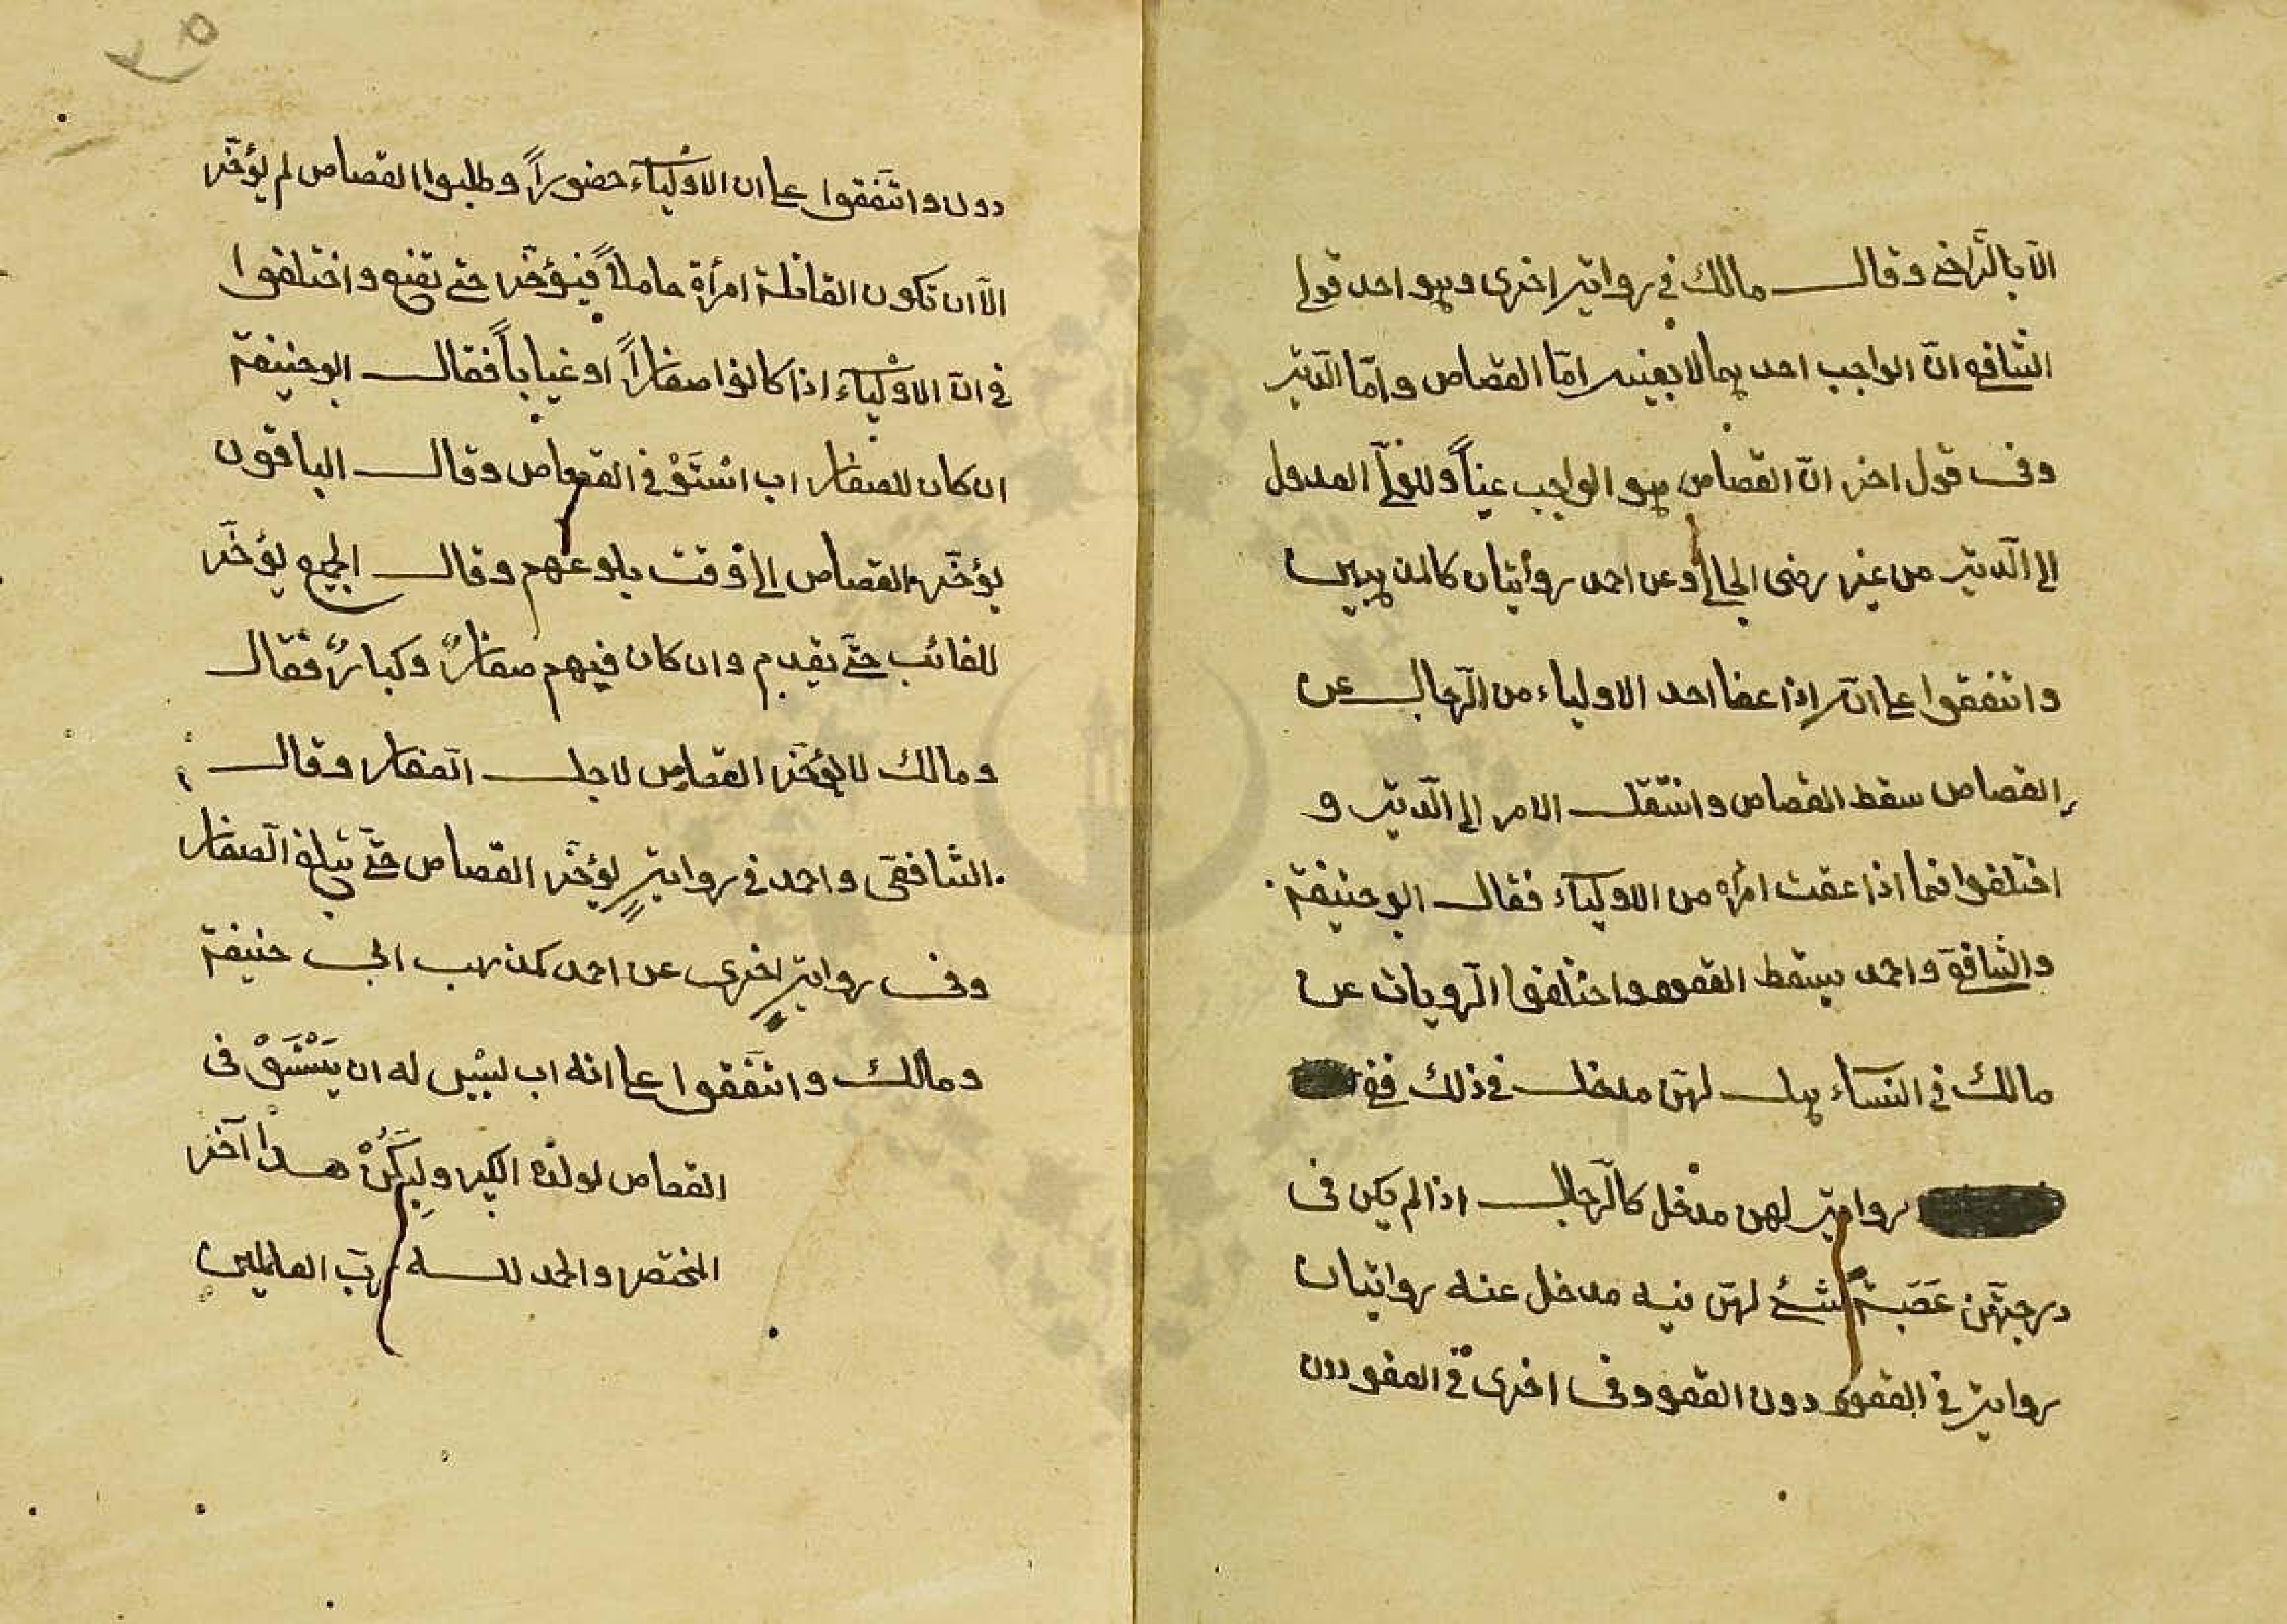 الّا بالتّراضي وقال مالك في رواية اخرى وهو احد قولي
الشافعي انّ الواجب احدهما لا بعينه امّا القصاص وامّا الدّية
وفي قول اخر انّ القصاص هو الواجب عيناً وللوليّ العدول
الى الدّية من غير رضى الجاني وعن احمد روايتان كالمذهبين
واتفقوا على انّه اذا عفا احد الاولياء من الرّجال عن
القصاص سقط القصاص وانتقل الامر الى الدّية و
اختلفوا فيما اذا عفت امرأة من الاولياء فقال ابو حنيفة
والشافعي واحمد يسقط القود واختلفوا الرّويات عن
مالك في النسآء هل لهنّ مدخل في ذلك ففي
رواية لهن مدخل كالرّجال اذا لم يكن في
درجتهنّ عَصَبَة شئ لهنّ فيه مدخل عنه روايتان
رواية في القود دون العفو وفي اخرى في العفو دون
دون واتّفقوا على ان الاوْليآء حضوراً وطلبوا القصاص لم يؤخّر
الّا ان تكون القاتلة امرأة حاملاً فيؤخّر حتى تضع واختلفوا
في انّ الاوْليآء اذا كانوا صغاراً او غياباً فقال ابو حنيفة
ان كان للصغار اب اسْتَوْفي القصاص وقال الباقون
يؤخّر القصاص الى وقت بلوغهم وقال الجميع يؤخّر
للغائب حتّى يقدم وان كان فيهم صغارٌ وكبارٌ فقال
ومالك لا يؤخّر القصاص لاجل الصّغار وقال
الشافعي واحمد في روايةٍ يؤخّر القصاص حتّى تبلغ الصّغار
وفي رواية اخرى عن احمد كمذهب ابي حنيفة
ومالك واتّفقوا على انه اب ليْس له ان يَسْتَوْفي
القصاص لولده الكبير ولِيَكُنْ هذا آخر
المختصر والحمد لله ربّ العالمين